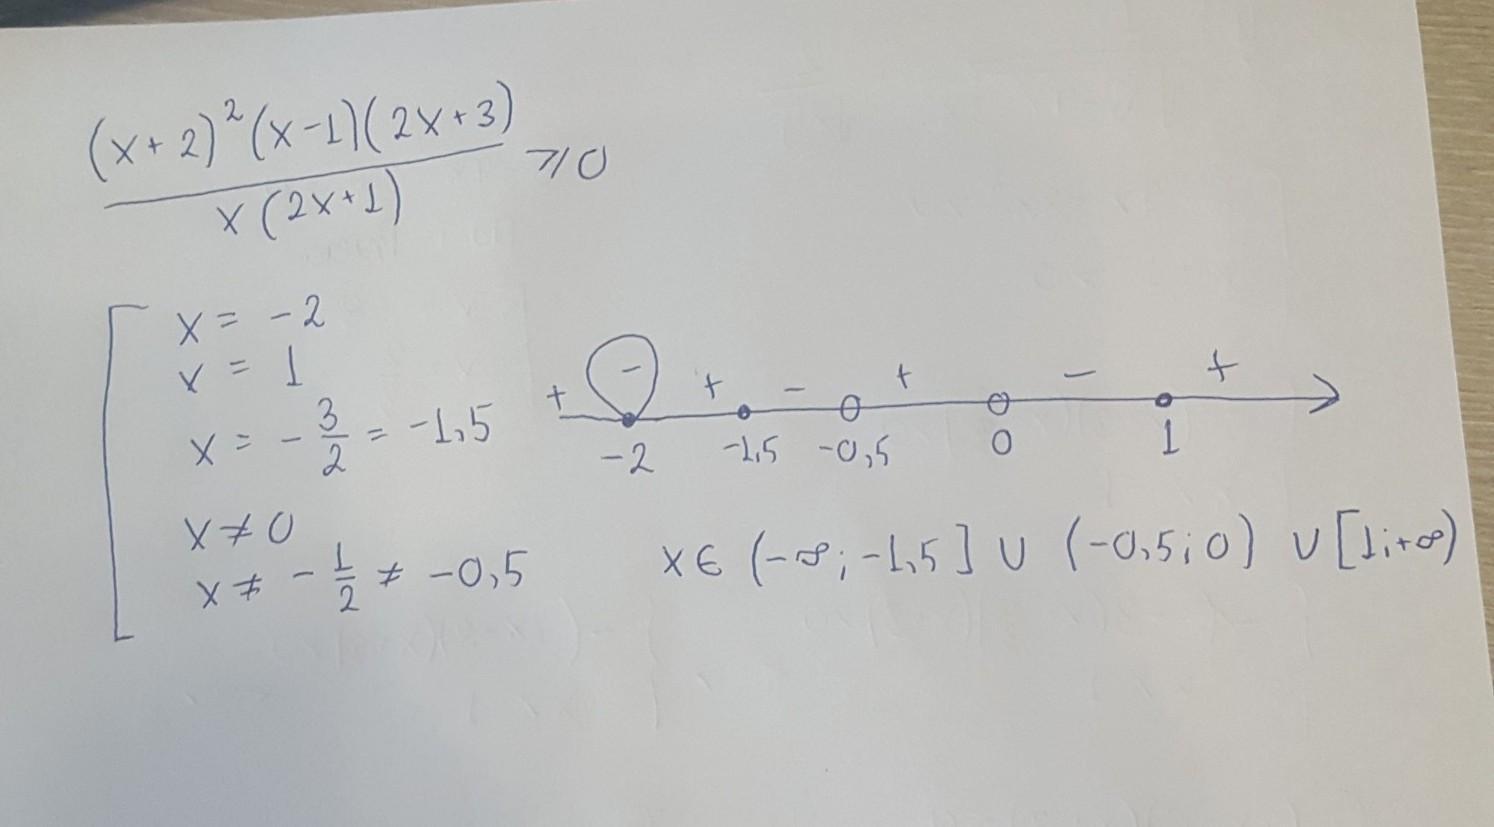 (x+2)²(x-1)(2x+3)
x(2x+1)
⩾0
x = -2
x = 1
x = -3/2 = -1,5
x ≠ 0
x ≠ -1/2 ≠ -0,5
+ - + - + - +
-2 -1,5 -0,5 0 1
x ∈ (-∞; -1,5] ∪ (-0,5; 0) ∪ [1; +∞)